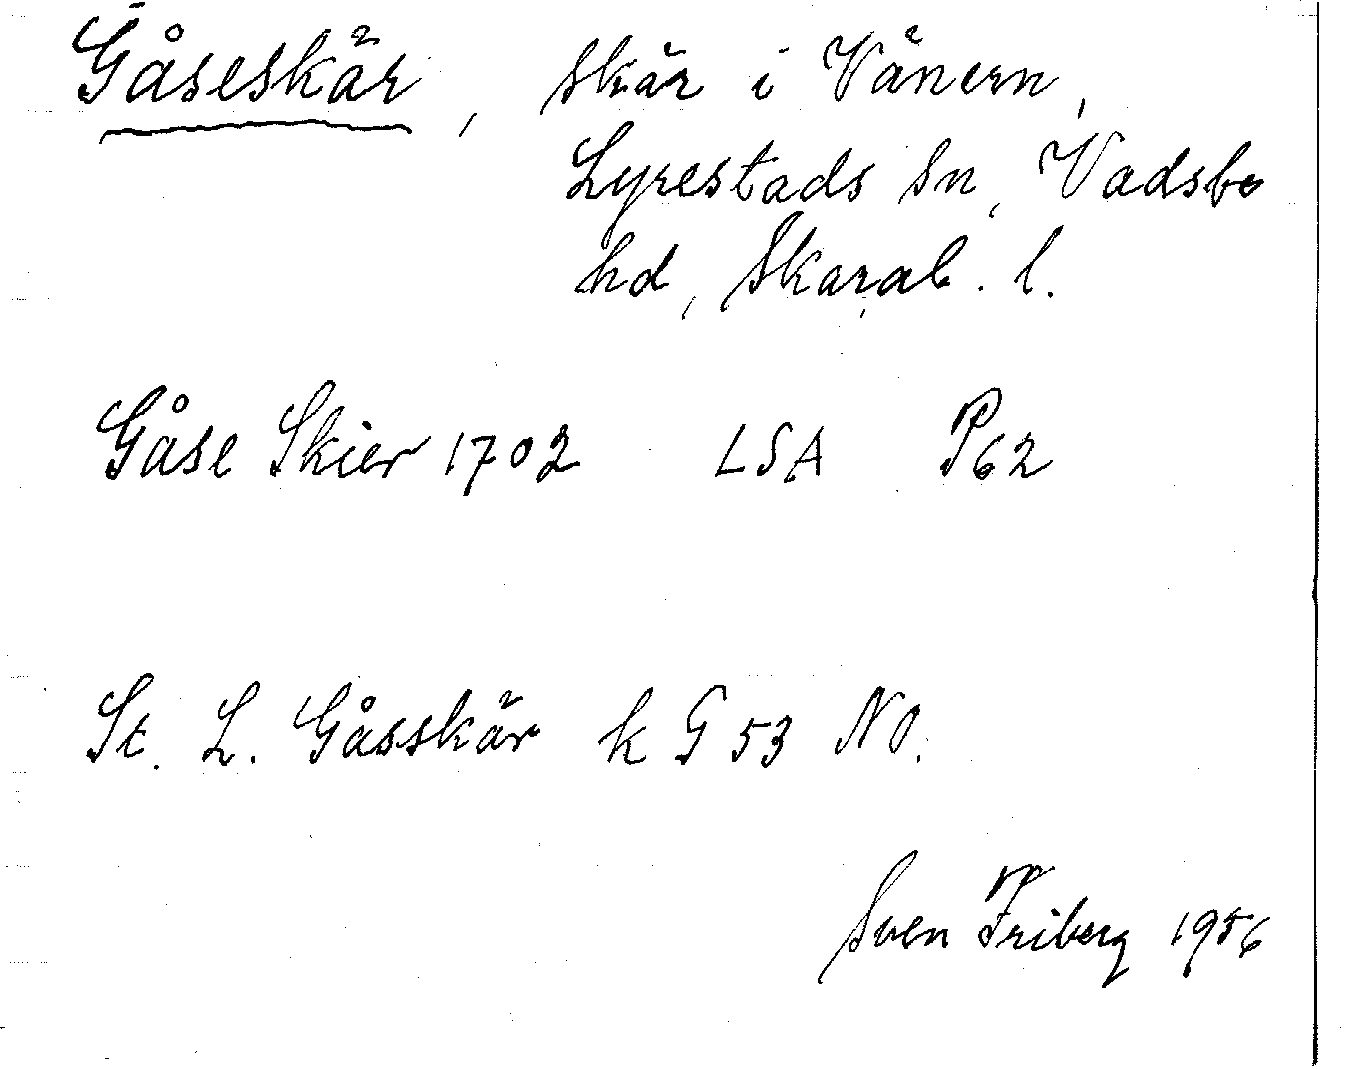 Gåseskär, skär i Vänern,
Lyrestads sn, Vadsbo
hd, Skarab. l.
Gåse Skier 1702 LSA P62
St. L. Gåsskär k G 53 NO.
Sven Friberg 1956